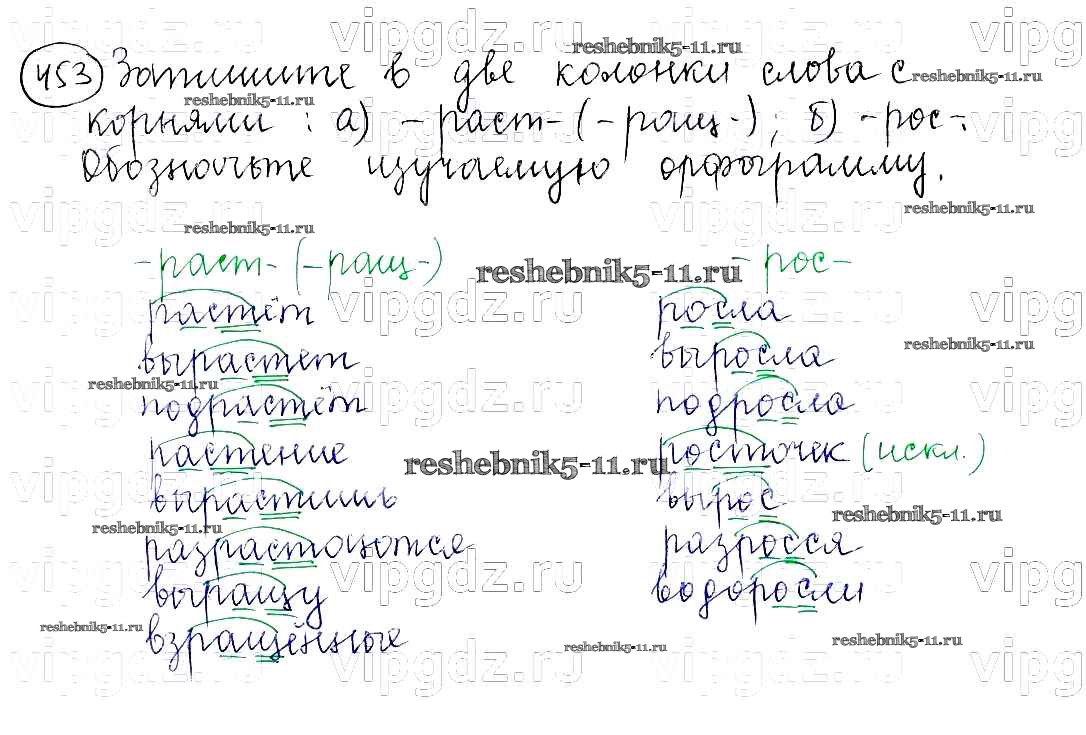 453 Запишите в две колонки слова с
корнями: а) -раст- (-ращ-); б) -рос-.
Обозначьте изучаемую орфограмму.
-раст- (-ращ-) -рос-
растёт росла
вырастет выросла
подрастёт подросла
растение росточек (искл.)
вырастишь вырос
разрастаются разросся
выращу водоросли
взращённые
vipgdz.ru
reshebnik5-11.ru